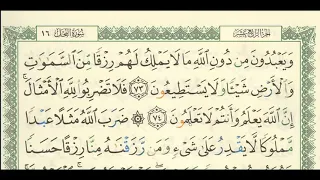 الجزء الرابع عشر
سورة النحل ١٦
وَيَعْبُدُونَ مِن دُونِ ٱللَّهِ مَا لَا يَمْلِكُ لَهُمْ رِزْقًا مِّنَ ٱلسَّمَٰوَٰتِ
وَٱلْأَرْضِ شَيْـًٔا وَلَا يَسْتَطِيعُونَ ٧٣ فَلَا تَضْرِبُوا۟ لِلَّهِ ٱلْأَمْثَالَ ۚ
إِنَّ ٱللَّهَ يَعْلَمُ وَأَنتُمْ لَا تَعْلَمُونَ ٧٤ ۞ ضَرَبَ ٱللَّهُ مَثَلًا عَبْدًا
مَّمْلُوكًا لَّا يَقْدِرُ عَلَىٰ شَىْءٍ وَمَن رَّزَقْنَٰهُ مِنَّا رِزْقًا حَسَنًا